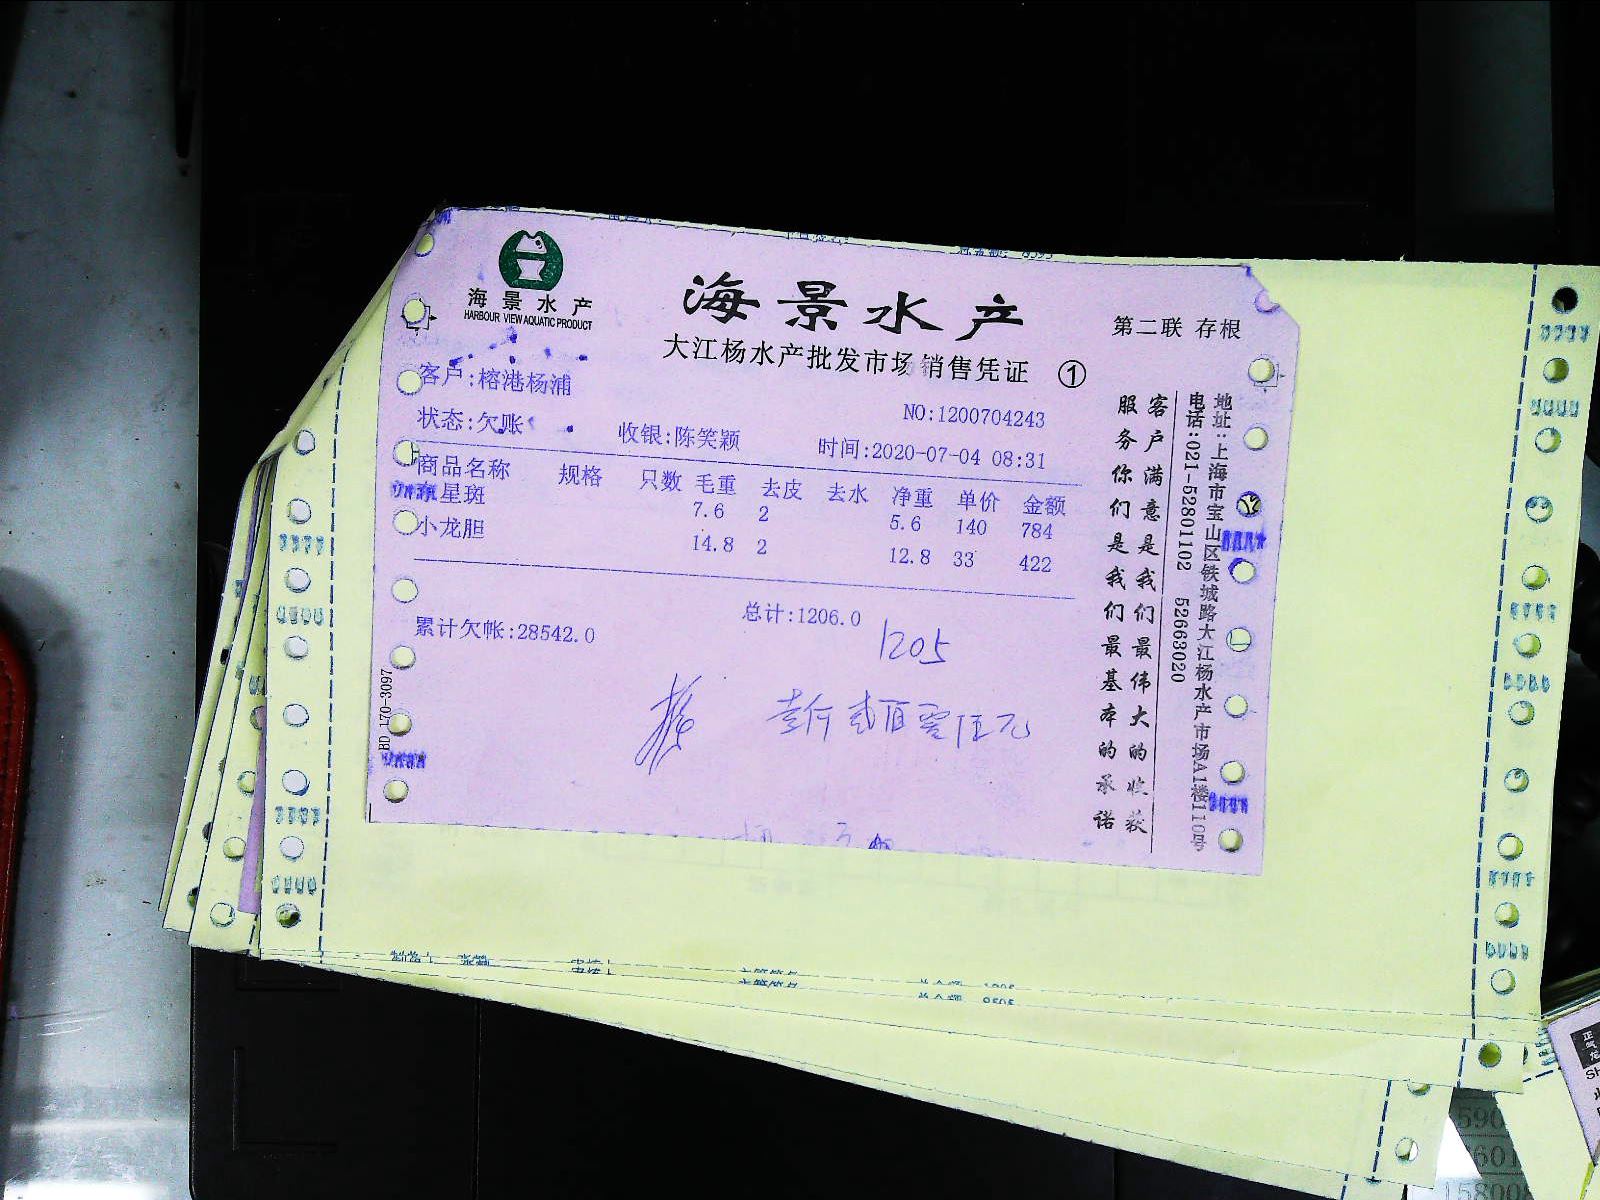 海景水产
HARBOUR VIEW AQUATIC PRODUCT
海景水产
大江杨水产批发市场销售凭证 ①
第二联 存根
客户:榕港杨浦
NO:1200704243
状态:欠账
收银:陈笑颖
时间:2020-07-04 08:31
商品名称 规格 只数 毛重 去皮 去水 净重 单价 金额
东星斑 7.6 2 5.6 140 784
小龙胆 14.8 2 12.8 33 422
总计:1206.0
累计欠帐:28542.0
1205
壹仟贰佰零伍元
BD 170-3097
客户满意是我们最伟大的收获
服务你们是我们最基本的承诺
地址:上海市宝山区铁城路大江杨水产市场A1楼110号
电话:021-52801102 52663020